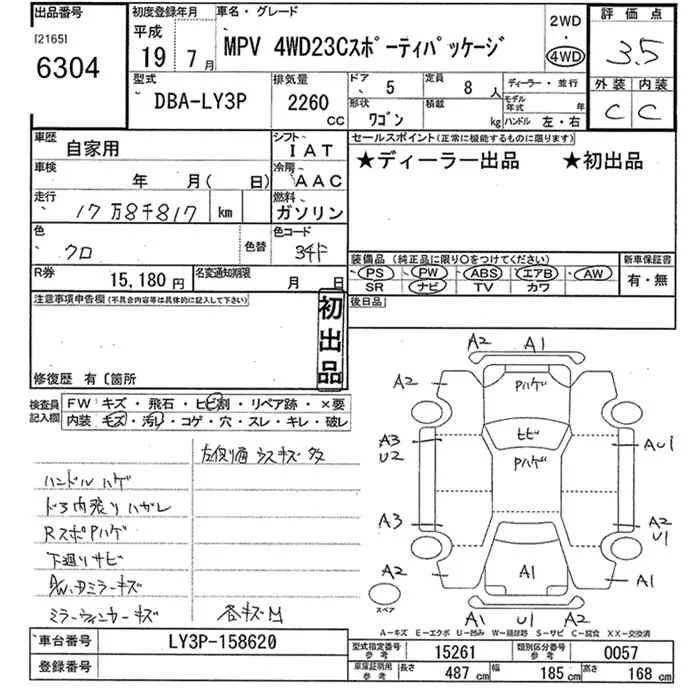 出品番号
[2165]
6304
初度登録年月
平成
19 7月
車名・グレード
MPV 4WD23Cスポーティパッケージ
2WD
・
4WD
評価点
3.5
外装 内装
C C
型式
DBA-LY3P
排気量
2260
CC
ドア 5
定員 8人
ディーラー・並行
形状
ワゴン
積載
kg
モデル年式 年
ハンドル 左・右
車歴
自家用
シフト
IAT
車検
年 月( 日)
冷房
AAC
走行
17万8千817 km
燃料
ガソリン
色
クロ
色替
色コード
34F
R券
15,180円
名変通知期限
月 日
セールスポイント(正常に機能するものに限ります)
★ディーラー出品 ★初出品
装備品 (純正品に限り○をつけてください)
PS PW ABS エアB AW
SR ナビ TV カワ
新車保証書
有・無
後日品
注意事項申告欄(不具合内容等は具体的に記入して下さい)
初出品
修復歴 有〔箇所
検査員記入欄
FW キズ・飛石・ヒビ割・リペア跡・×要
内装 キズ・汚レ・コゲ・穴・スレ・キレ・破レ
左側通ウスキズ多
ハンドルハゲ
ドア内張りハガレ
RスポPハゲ
下廻リサビ
A/W,Dミラーキズ
ミラーウィンカーキズ 各キズM
A2 A1
A2 Pハゲ
ヒビ
A3 U2 Pハゲ AU1
A3 A2 U1
A2 A1 A1
スペア
A1 U1 A2
A-キズ E-エクボ U-凹み W-補修跡 S-サビ C-腐食 XX-交換済
車台番号
LY3P-158620
登録番号
型式指定番号 参考 15261
類別区分番号 参考 0057
車庫証明用 参考 長さ 487cm 幅 185cm 高さ 168cm